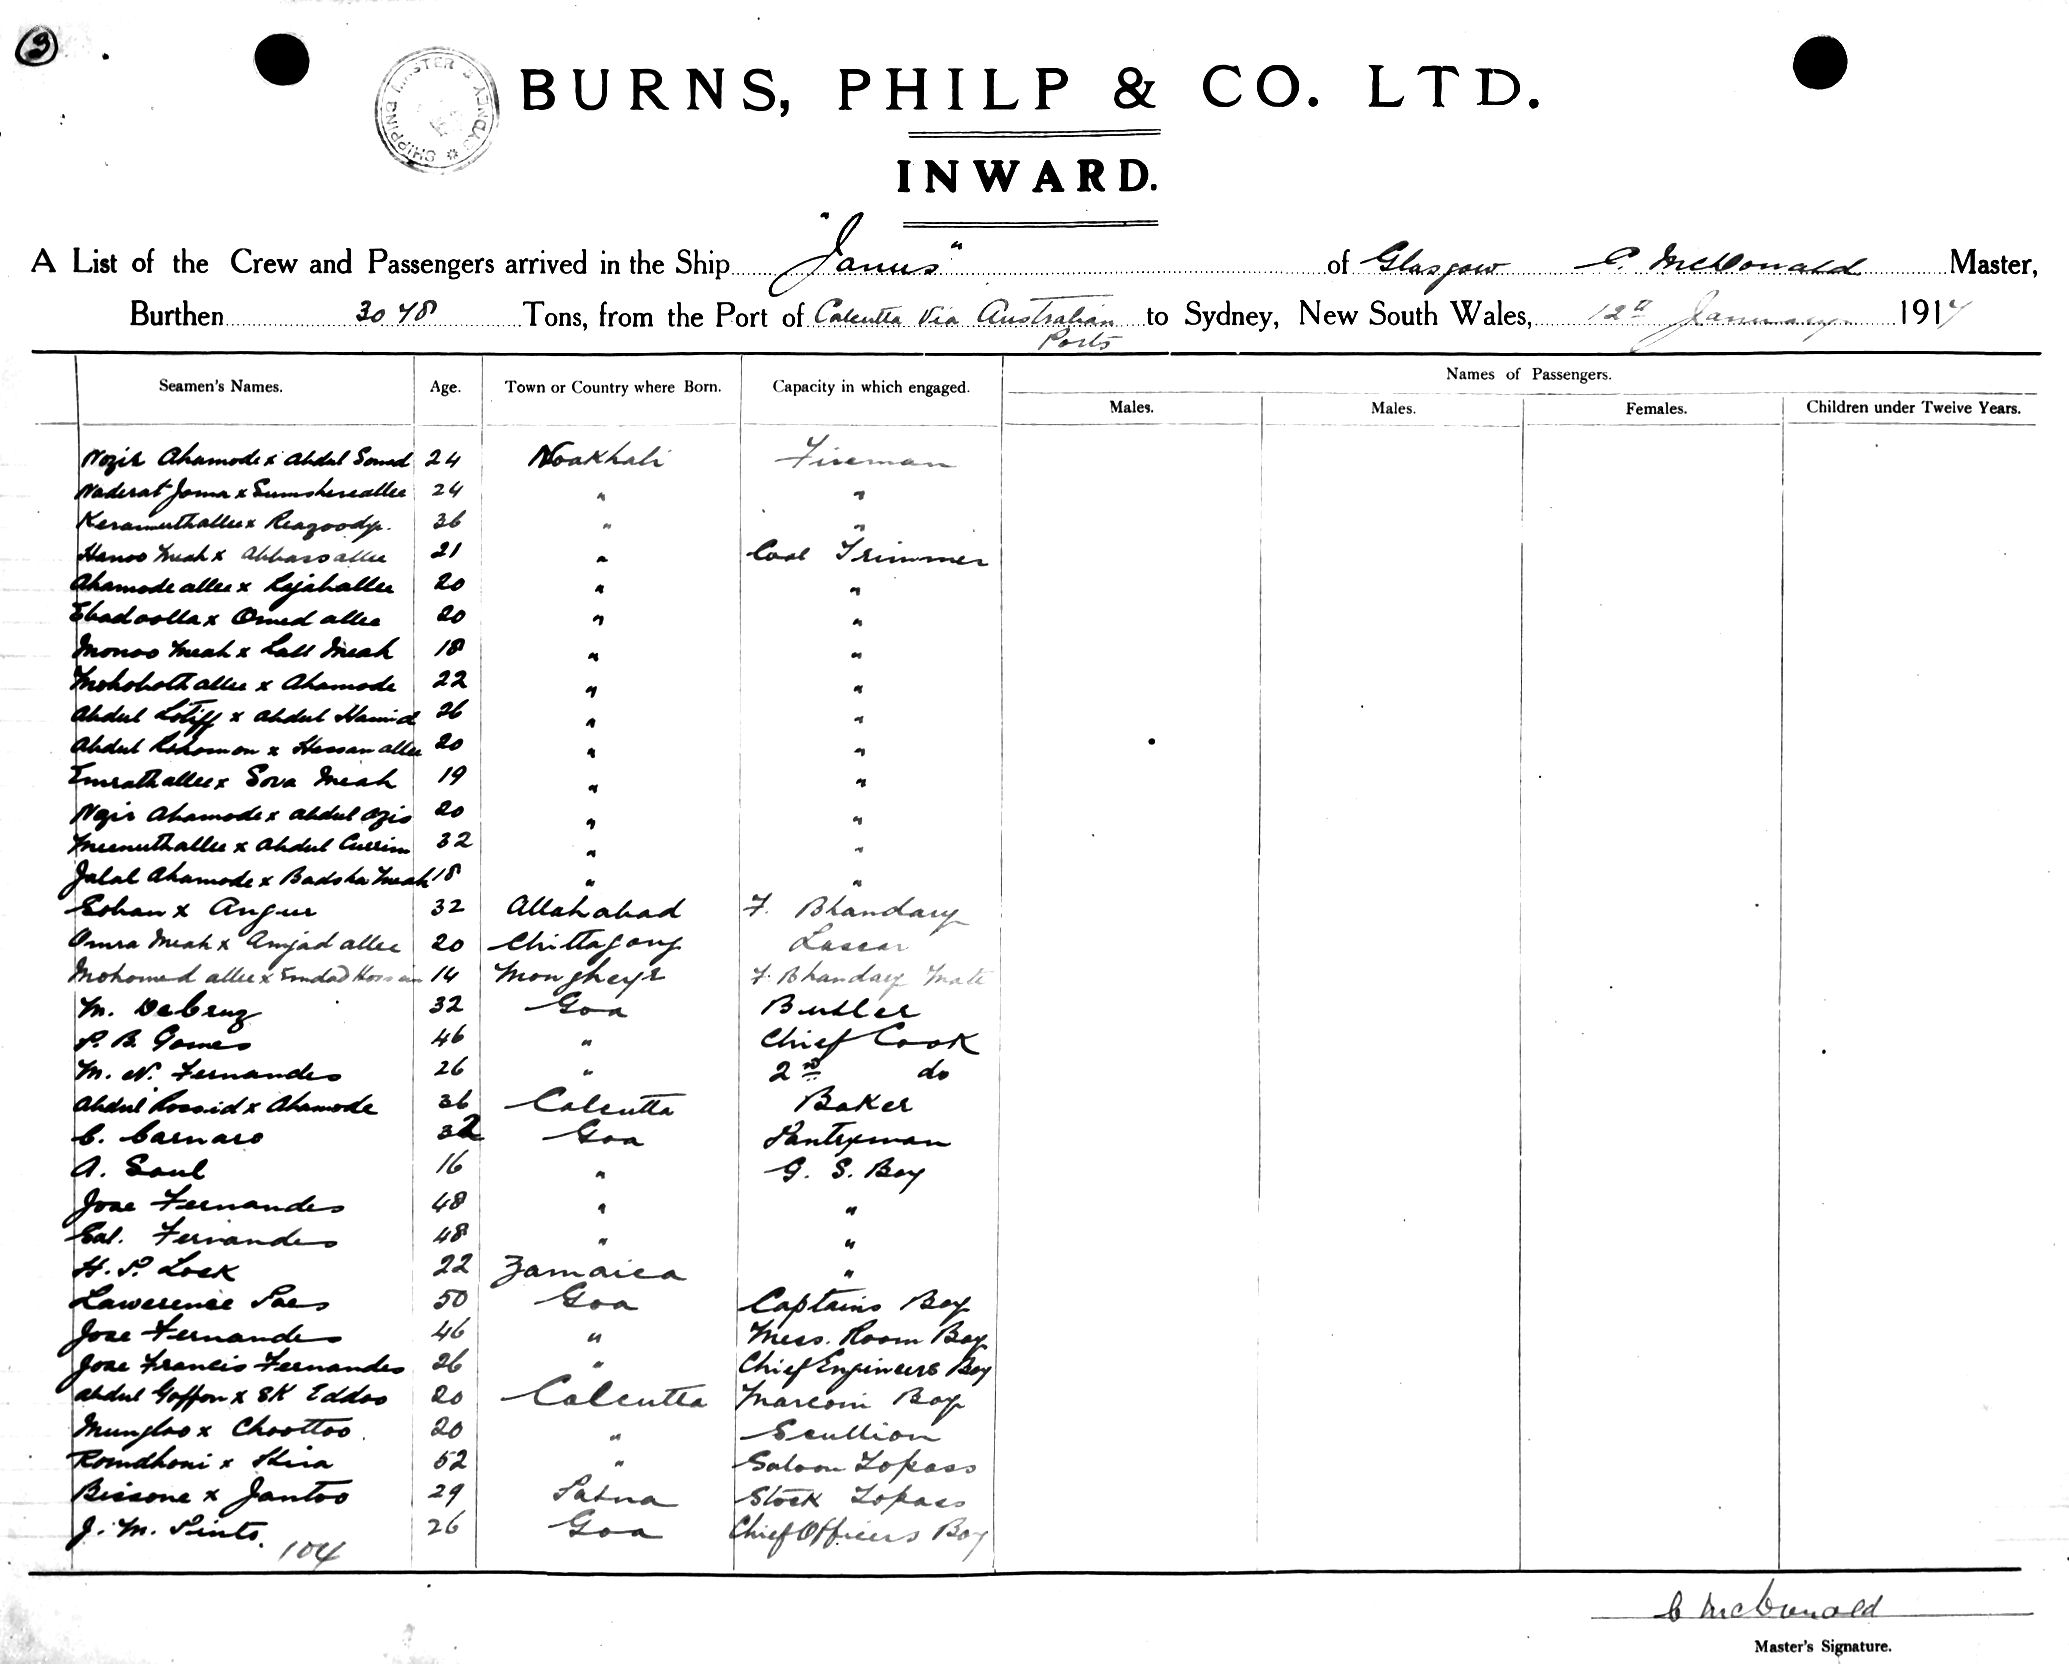 3
SHIPPING MASTER SYDNEY
BURNS, PHILP & CO. LTD.
INWARD.
A List of the Crew and Passengers arrived in the Ship "Janus" of Glasgow C. McDonald Master,
Burthen 3048 Tons, from the Port of Calcutta via Australian Ports to Sydney, New South Wales, 12th January 1914
Names of Passengers.
Seamen's Names. Age. Town or Country where Born. Capacity in which engaged. Males. Males. Females. Children under Twelve Years.
Nozir Ahamode x Abdul Somad 24 Noakhali Fireman
Naderat Joma x Sumshereallee 24 " "
Keramuthallee x Reazoody. 36 " "
Hanoo Meah x Abbassallee 21 " Coal Trimmer
Ahamode allee x Rajahallee 20 " "
Ebadoolla x Omed allee 20 " "
Monoo Meah x Lall Meah 18 " "
Mohoboth allee x Ahamode 22 " "
Abdul Lotiff x Abdul Hamid 26 " "
Abdul Rohomon x Hassan allee 20 " "
Emrathallee x Sova Meah 19 " "
Nozir Ahamode x Abdul Ozis 20 " "
Meenuthallee x Abdul Currim 32 " "
Jalal Ahamode x Badsha Meah 18 " "
Sohan x Angur 32 Allahabad F. Bhandary
Omra Meah x Amjad allee 20 Chittagong Lascar
Mohomed allee x Emdad Hossain 14 Mongheyr F. Bhandary Mate
M. DeCruz 32 Goa Butler
P. B. Gomes 46 " Chief Cook
M. N. Fernandes 26 " 2nd do
Abdul Rossid x Ahamode 36 Calcutta Baker
C. Carnaro 32 Goa Pantryman
A. Saul 16 " G. S. Boy
Jose Fernandes 48 " "
Sal. Fernandes 48 " "
H. P. Lock 22 Jamaica "
Lawerence Paes 50 Goa Captains Boy
Jose Fernandes 46 " Mess. Room Boy
Jose Francis Fernandes 26 " Chief Engineers Boy
Abdul Goffon x SK Eddoo 20 Calcutta Marconi Boy
Mungloo x Choottoo 20 " Scullion
Romdhoni x Hira 52 " Saloon Topass
Bissone x Jantoo 29 Patna Stock Topass
J. M. Pinto. 26 Goa Chief Officers Boy
104
C McDonald
Master's Signature.